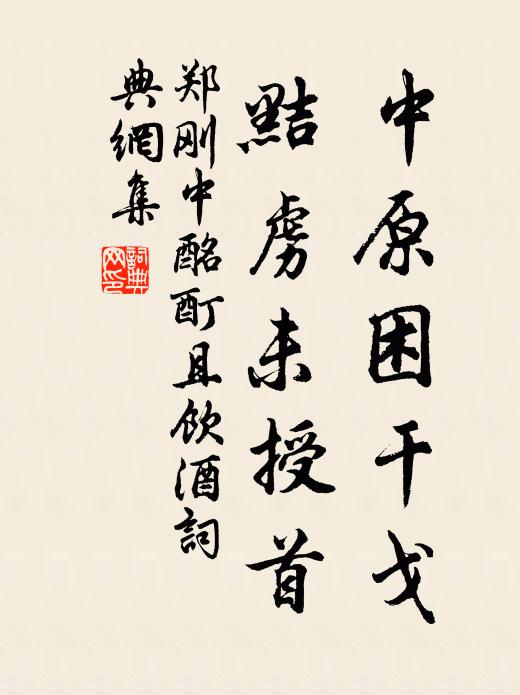 中原困干戈
黠虏未授首
郑刚中酩酊且饮酒詞
典網集
詞典網印